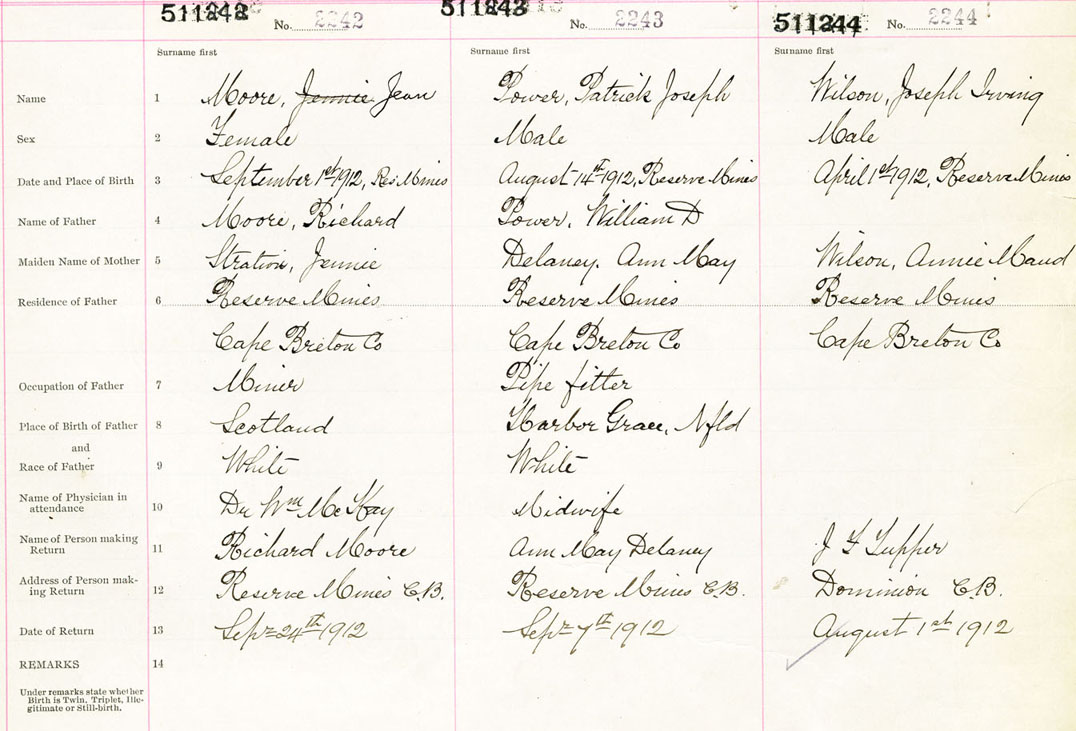 511242 No. 2242 511243 No. 2243 511244 No. 2244
Surname first Surname first Surname first
Name 1 Moore, Jennie Jean Power, Patrick Joseph Wilson, Joseph Irving
Sex 2 Female Male Male
Date and Place of Birth 3 September 1st 1912, Res. Mines August 14th 1912, Reserve Mines April 1st 1912, Reserve Mines
Name of Father 4 Moore, Richard Power, William D
Maiden Name of Mother 5 Jennie Delaney. Ann May Wilson, Annie Maud
Residence of Father 6 Reserve Mines Reserve Mines Reserve Mines
Cape Breton Co Cape Breton Co Cape Breton Co
Occupation of Father 7 Miner Pipe fitter
Place of Birth of Father 8 Scotland Harbor Grace, Nfld
and
Race of Father 9 White White
Name of Physician in
attendance 10 Dr Wm McKay Midwife
Name of Person making
Return 11 Richard Moore Ann May Delaney J F Tupper
Address of Person mak-
ing Return 12 Reserve Mines C.B. Reserve Mines C.B. Dominion C.B.
Date of Return 13 Sept 24th 1912 Sept 7th 1912 August 1st 1912
REMARKS 14
Under remarks state whether
Birth is Twin, Triplet, Ille-
gitimate or Still-birth.